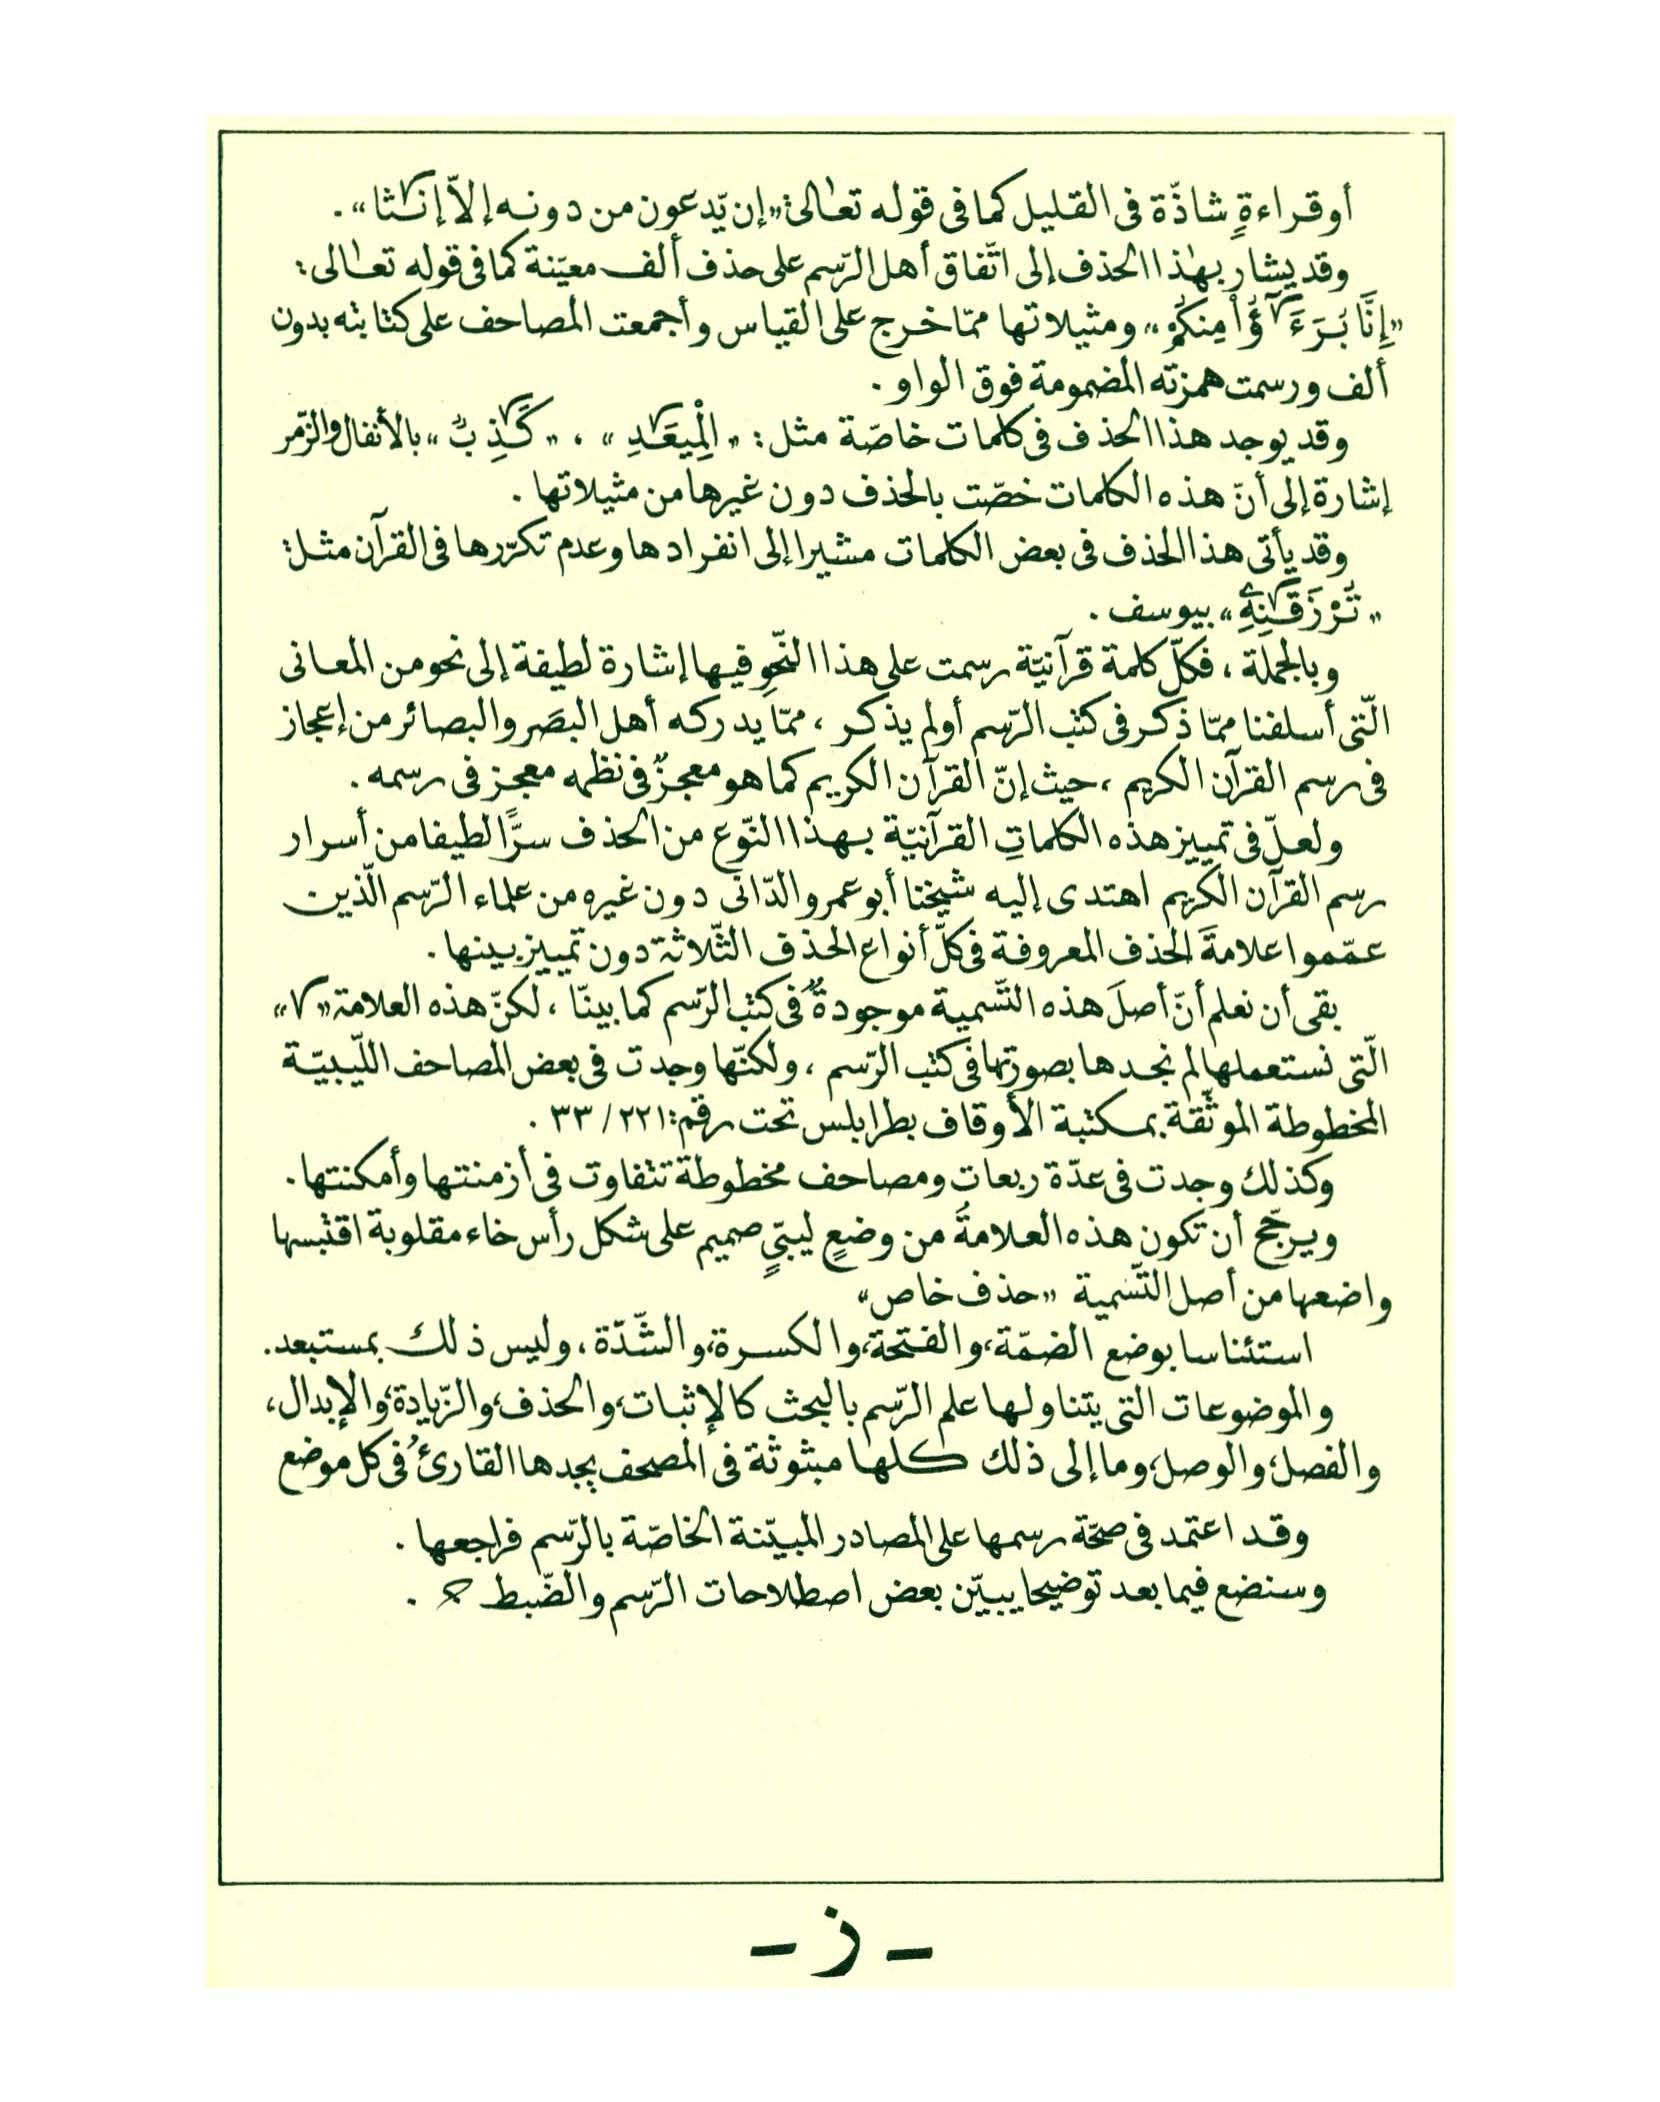 أو قراءةٍ شاذّة فى القليل كما فى قوله تعالىٰ: «إن يّدعون من دونه إلاّ إنٰثا» .
وقد يشار بهٰذا الحذف إلى اتّفاق أهل الرّسم على حذف ألف معيّنة كما فى قوله تعالى:
«إِنَّا بُرَءَٰٓؤُاْ مِنكُمْ» ومثيلاتها ممّا خرج على القياس وأجمعت المصاحف على كتابته بدون
ألف ورسمت همزته المضمومة فوق الواو .
وقد يوجد هذا الحذف فى كلمات خاصّة مثل: «الْمِيعَٰدِ» ، «كَٰذِبٌ» بالأنفال والزّمر
إشارة إلى أنّ هذه الكلمات خصّت بالحذف دون غيرها من مثيلاتها .
وقد يأتى هذا الحذف فى بعض الكلمات مشيرا إلى انفرادها وعدم تكرّرها فى القرآن مثل:
«تُرْزَقَٰنِهِۦ» بيوسف .
وبالجملة ، فكلّ كلمة قرآنيّة رسمت على هذا النّحوِ فيها إشارة لطيفة إلى نحو من المعانى
الّتى أسلفنا ممّا ذكر فى كتب الرّسم أو لم يذكر ، ممّا يدركه أهل البصَر والبصائر من إعجاز
فى رسم القرآن الكريم ، حيث إنّ القرآن الكريم كما هو معجزٌ فى نظمه معجز فى رسمه .
ولعلّ فى تمييز هذه الكلماتِ القرآنيّة بهذا النّوع من الحذف سرًّا لطيفا من أسرار
رسم القرآن الكريم اهتدى إليه شيخنا أبو عمرو الدّانى دون غيره من علماء الرّسم الّذين
عمّموا علامةَ الحذف المعروفة فى كلّ أنواع الحذف الثّلاثة دون تمييز بينها .
بقى أن نعلم أنّ أصلَ هذه التّسمية موجودةٌ فى كتب الرّسم كما بينّا ، لكنّ هذه العلامة «٧»
الّتى نستعملها لم نجدها بصورتها فى كتب الرّسم ، ولكنّها وجدت فى بعض المصاحف اللّيبيّة
المخطوطة الموثّقة بمكتبة الأوقاف بطرابلس تحت رقم: ٢٢١ / ٣٣ .
وكذلك وجدت فى عدّة ربعات ومصاحف مخطوطة تتفاوت فى أزمنتها وأمكنتها .
ويرجّح أن تكون هذه العلامةُ من وضعٍ ليبىٍّ صميم على شكل رأس خاء مقلوبة اقتبسها
واضعها من أصل التّسمية «حذف خاص»
استئناسا بوضع الضمّة، والفتحة، والكسرة، والشّدّة ، وليس ذلك بمستبعد .
والموضوعات التى يتناولها علم الرّسم بالبحث كالإثبات، والحذف، والزّيادة، والإبدال،
والفصل، والوصل، وما إلى ذلك كلها مبثوثة فى المصحف يجدها القارئُ فى كل موضع
وقد اعتمد فى صحّة رسمها على المصادر المبيّنة الخاصّة بالرّسم فراجعها .
وسنضع فيما بعد توضيحا يبيّن بعض اصطلاحات الرّسم والضّبط .
- ز -